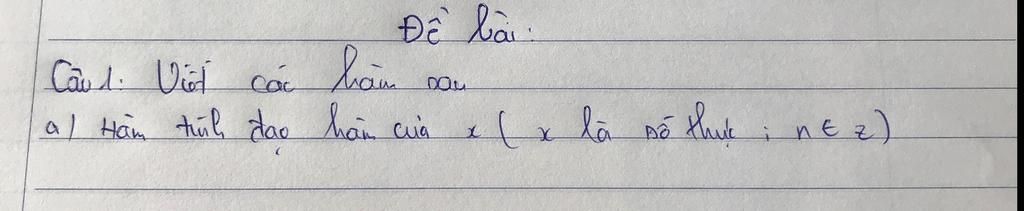 Đề bài:
Câu 1: Viết các hàm sau
a) Hàm tính đạo hàm của x ( x là số thực ; n ∈ z )